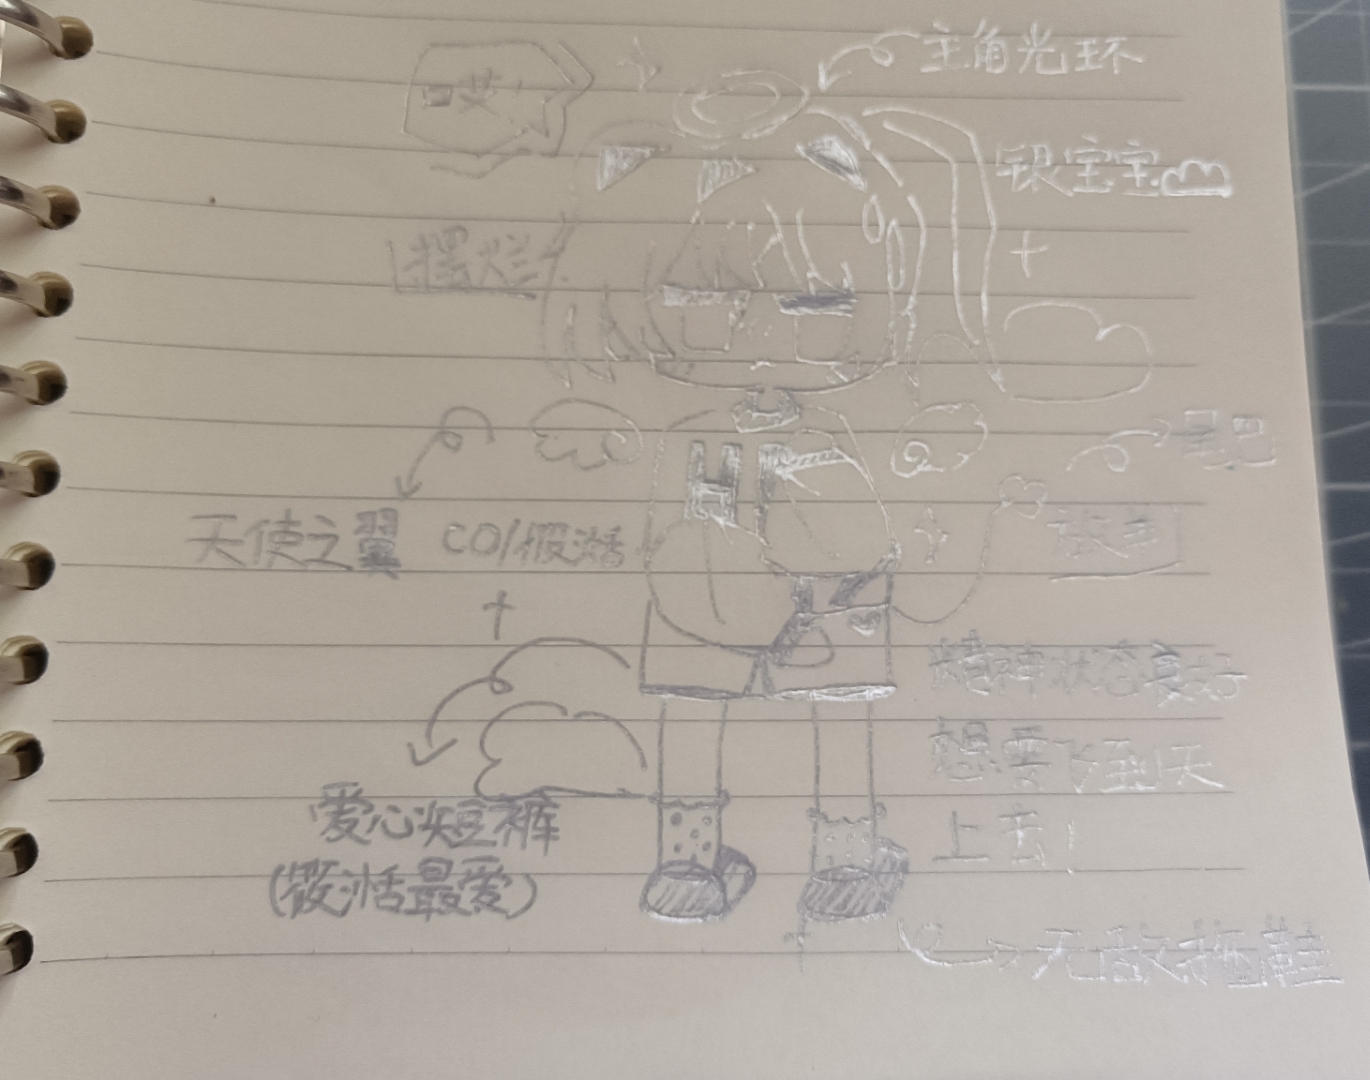 主角光环
哎
银宝宝
摆烂
尾巴
天使之翼
CO/筱湉
精神状态良好
想要飞到天
上去！
爱心短裤
(筱湉最爱)
无敌拖鞋